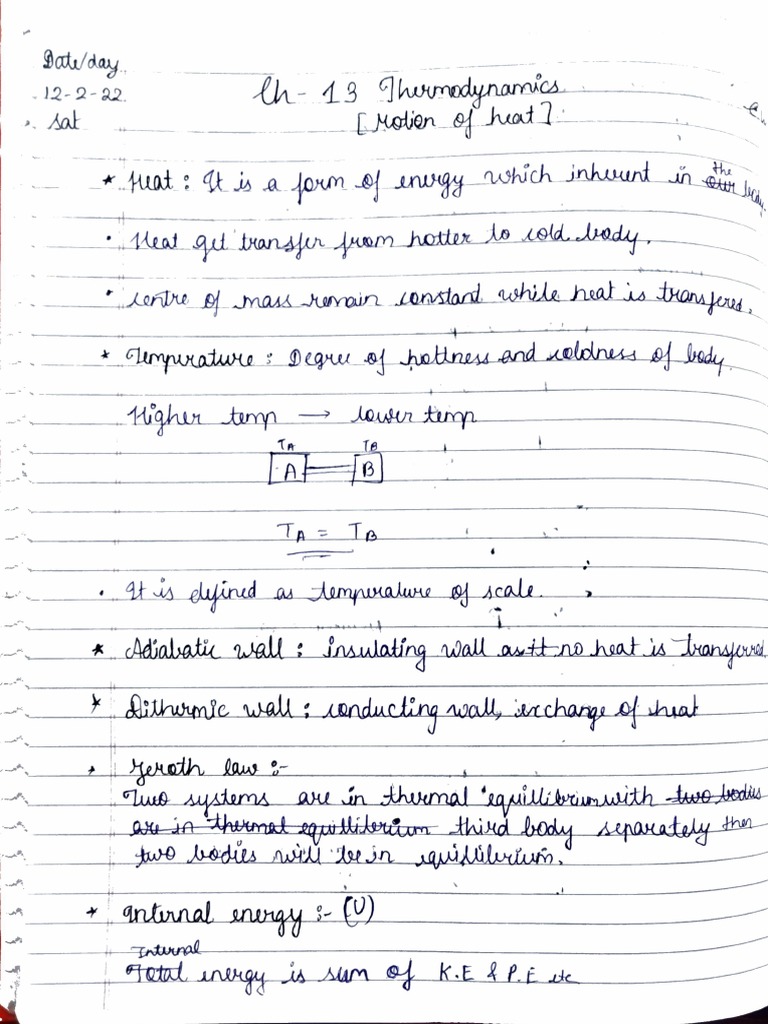 Date/day
12-2-22
Sat
Ch - 13 Thermodynamics
[Motion of heat]
* Heat : It is a form of energy which inherent in the our body.
• Heat get transfer from hotter to cold body.
• centre of mass remain constant while heat is transfered.
* Temperature : Degree of hottness and coldness of body.
Higher temp → lower temp
TA TB
A B
TA = TB
• It is defined as temperature of scale.
* Adiabatic wall : insulating wall as it no heat is transferred
* Dithermic wall : conducting wall, exchange of heat
• Zeroth law :-
Two systems are in thermal equillibrium with two bodies
are in thermal equillibrium third body separately then
two bodies will be in equillibrium.
* Internal energy :- (U)
Internal
Total energy is sum of K.E & P.E etc